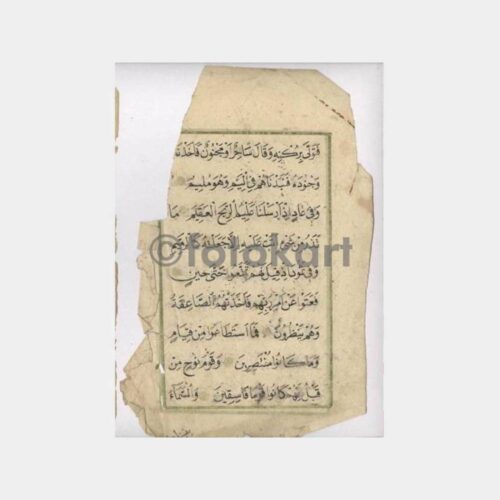 فَتَوَلَّى بِرُكْنِهِ وَقَالَ سَاحِرٌ اَوْ مَجْنُونٌ فَاَخَذْنَا
وَجُنُودَهُ فَنَبَذْنَاهُمْ فِي الْيَمِّ وَهُوَ مُلِيمٌ
وَفِي عَادٍ اِذْ اَرْسَلْنَا عَلَيْهِمُ الرِّيحَ الْعَقِيمَ مَا
تَذَرُ مِنْ شَيْءٍ اَتَتْ عَلَيْهِ اِلَّا جَعَلَتْهُ كَالرَّمِيمِ
©fotokart
وَفِي ثَمُودَ اِذْ قِيلَ لَهُمْ تَمَتَّعُوا حَتَّى حِينٍ
فَعَتَوْا عَنْ اَمْرِ رَبِّهِمْ فَاَخَذَتْهُمُ الصَّاعِقَةُ
وَهُمْ يَنْظُرُونَ فَمَا اسْتَطَاعُوا مِنْ قِيَامٍ
وَمَا كَانُوا مُنْتَصِرِينَ وَقَوْمَ نُوحٍ مِنْ
قَبْلُ اِنَّهُمْ كَانُوا قَوْمًا فَاسِقِينَ وَالسَّمَاءَ